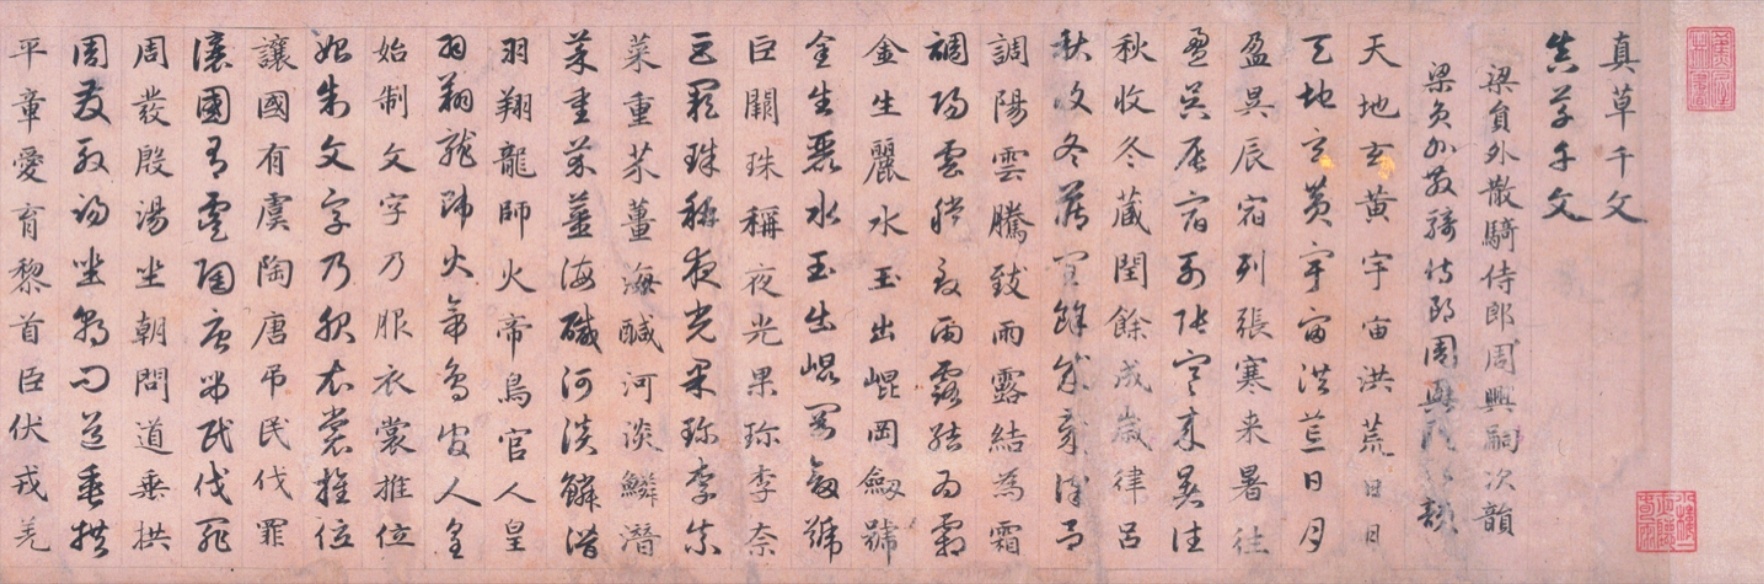 真草千文
真草千文
梁員外散騎侍郎周興嗣次韻
梁員外散騎侍郎周興韻
天地玄黃宇宙洪荒日月
天地玄黃宇宙洪荒日月
盈昃辰宿列張寒来暑往
盈昃辰宿列張寒来暑往
秋收冬藏閏餘成歲律呂
秋收冬藏閏餘成歲律呂
調陽雲騰致雨露結為霜
調陽雲騰致雨露結為霜
金生麗水玉出崐岡劒號
金生麗水玉出崐岡劒號
巨闕珠稱夜光果珍李柰
巨闕珠稱夜光果珍李柰
菜重芥薑海醎河淡鱗潛
菜重芥薑海醎河淡鱗潛
羽翔龍師火帝鳥官人皇
羽翔龍師火帝鳥官人皇
始制文字乃服衣裳推位
始制文字乃服衣裳推位
讓國有虞陶唐弔民伐罪
讓國有虞陶唐弔民伐罪
周發殷湯坐朝問道垂拱
周發殷湯坐朝問道垂拱
平章愛育黎首臣伏戎羌